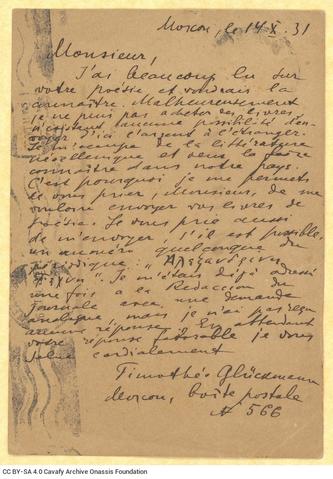 Moscou, le 14 X. 31
Monsieur,
J'ai beaucoup lu sur
votre poésie et voudrais la
connaître. Malheureusement
je ne puis pas acheter les livres,
n'existant aucune possibilité d'en-
voyer d'ici l'argent à l'étranger.
Je m'occupe de la littérature
néohellénique et veux la faire
connaître dans notre pays.
C'est pourquoi je me permets
de vous prier, monsieur, de me
vouloir envoyer vos livres de
poésie. Je vous prie aussi
de m'envoyer, s'il est possible,
un numéro quelconque du
périodique „Αλεξανδρινη
Τεχνη". Je m'étais déjà adressé
une fois à la Redaction du
journale avec une demande
analogue, mais je n'ai pas reçu
aucune réponse. En attendant
votre réponse favorable je vous
salue cordialement
Timothéo Glückmann
Moscou, boîte postale
№ 566
CC BY-SA 4.0 Cavafy Archive Onassis Foundation